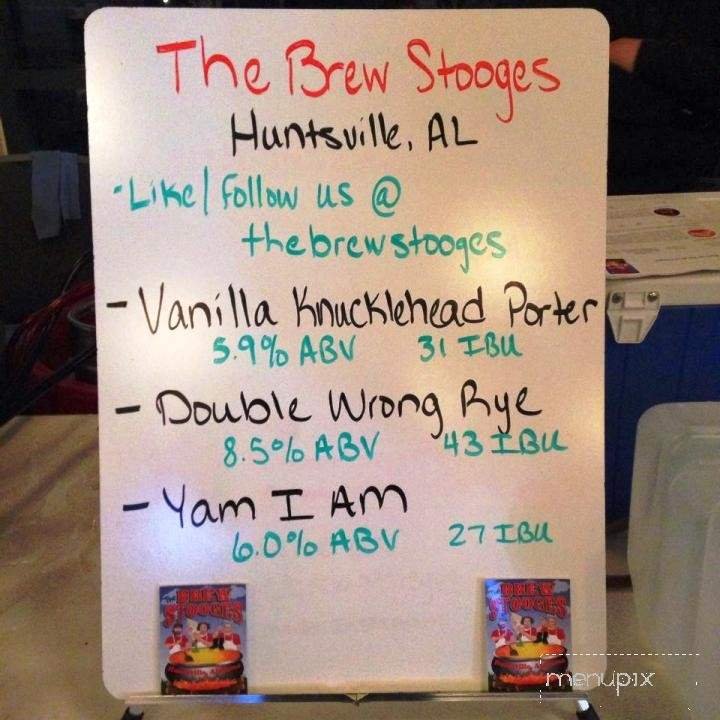 The Brew Stooges
Huntsville, AL
-Like/follow us @
thebrewstooges
- Vanilla Knucklehead Porter
5.9% ABV 31 IBU
- Double Wrong Rye
8.5% ABV 43 IBU
- Yam I Am
6.0% ABV 27 IBU
BREW
STOOGES
BREW
STOOGES
menupix